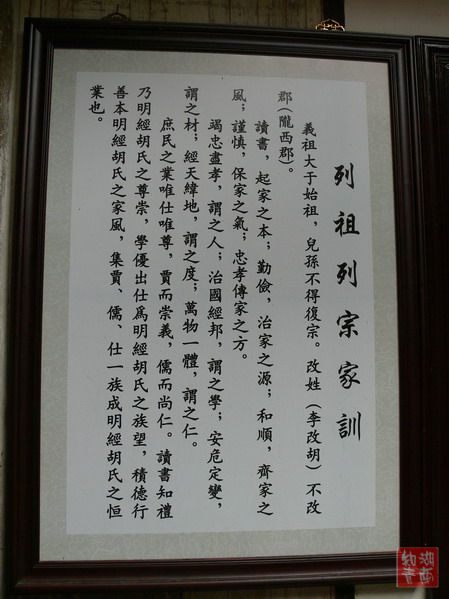 列祖列宗家訓
義祖大于始祖，兒孫不得復宗。改姓（李改胡）不改
郡(隴西郡)。
讀書，起家之本；勤儉，治家之源；和順，齊家之
風；謹慎，保家之氣；忠孝傳家之方。
竭忠盡孝，謂之人；治國經邦，謂之學；安危定變，
謂之材；經天緯地，謂之度；萬物一體，謂之仁。
庶民之業唯仕唯尊，賈而崇義，儒而尚仁。讀書知禮
乃明經胡氏之尊崇，學優出仕爲明經胡氏之族望，積德行
善本明經胡氏之家風，集賈、儒、仕一族成明經胡氏之恒
業也。